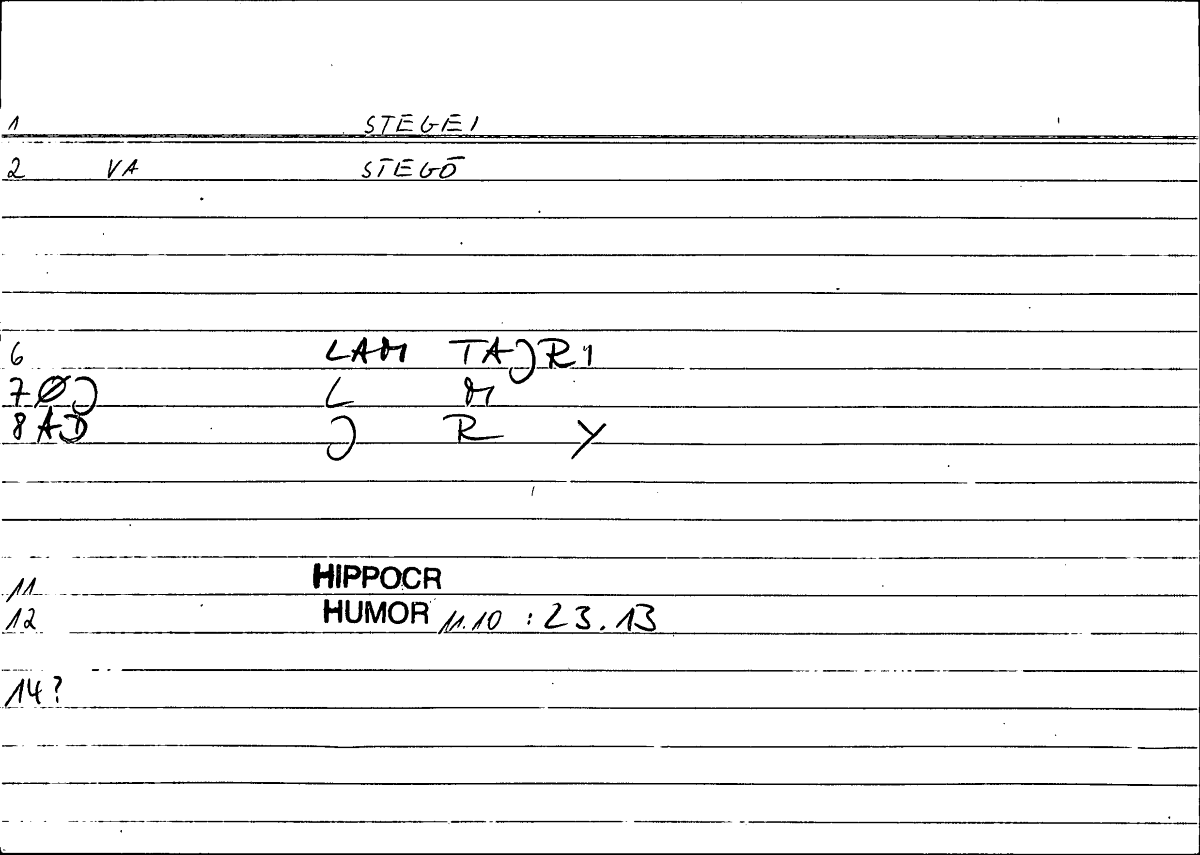 1 STEGEI
2 VA STEGŌ
6 LAM TAJR1
7 ØJ L M
8 AD J R Y
11 HIPPOCR
12 HUMOR 11.10 : 23.13
14?